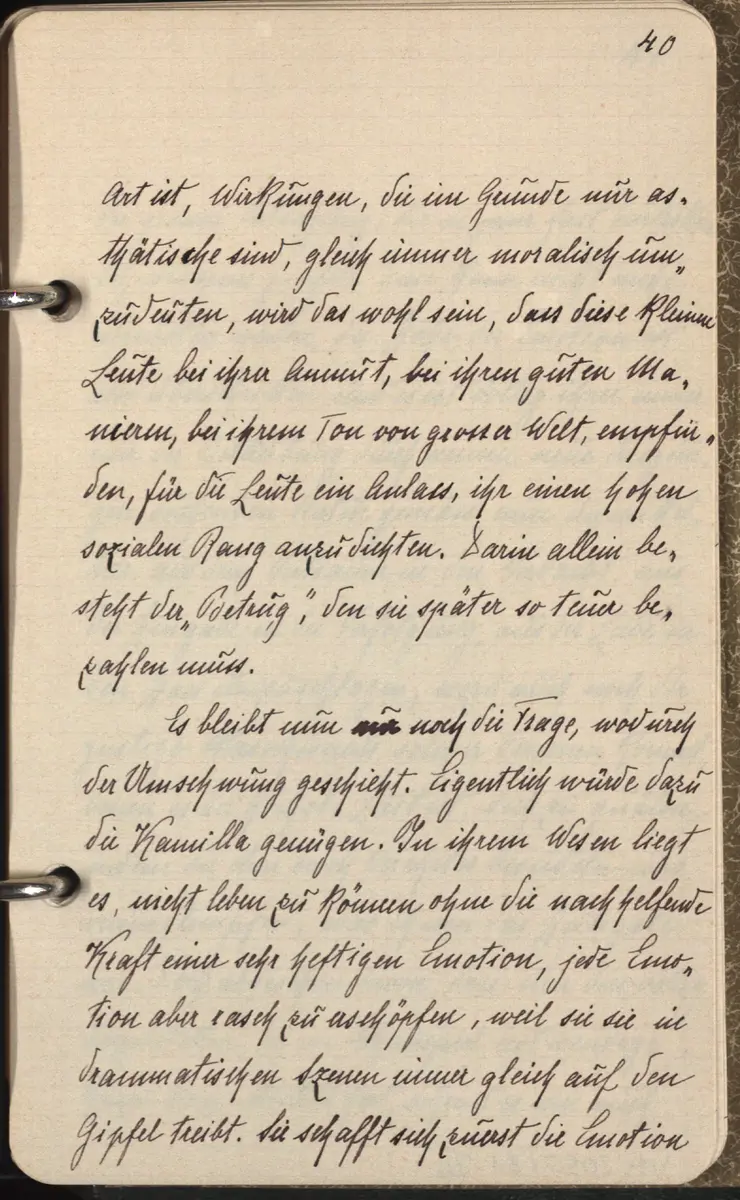 40
Art ist, Wirkungen, die im Grunde nur äs-
thätische sind, gleich immer moralisch um-
zudeuten, wird das wohl sein, dass diese kleinen
Leute bei ihrer Anmut, bei ihren guten Ma-
nieren, bei ihrem Ton von grosser Welt, empfin-
den, für die Leute ein Anlass, ihr einen hohen
sozialen Rang anzudichten. Darin allein be-
steht der „Betrug", den sie später so teuer be-
zahlen muss.
Es bleibt nun noch die Frage, wodurch
der Umschwung geschieht. Eigentlich würde dazu
die Kamilla genügen. In ihrem Wesen liegt
es, nicht leben zu können ohne die nachhelfende
Kraft einer sehr heftigen Emotion, jede Emo-
tion aber rasch zu erschöpfen, weil sie sie in
drammatischen Szenen immer gleich auf den
Gipfel treibt. Sie schafft sich zuerst die Emotion